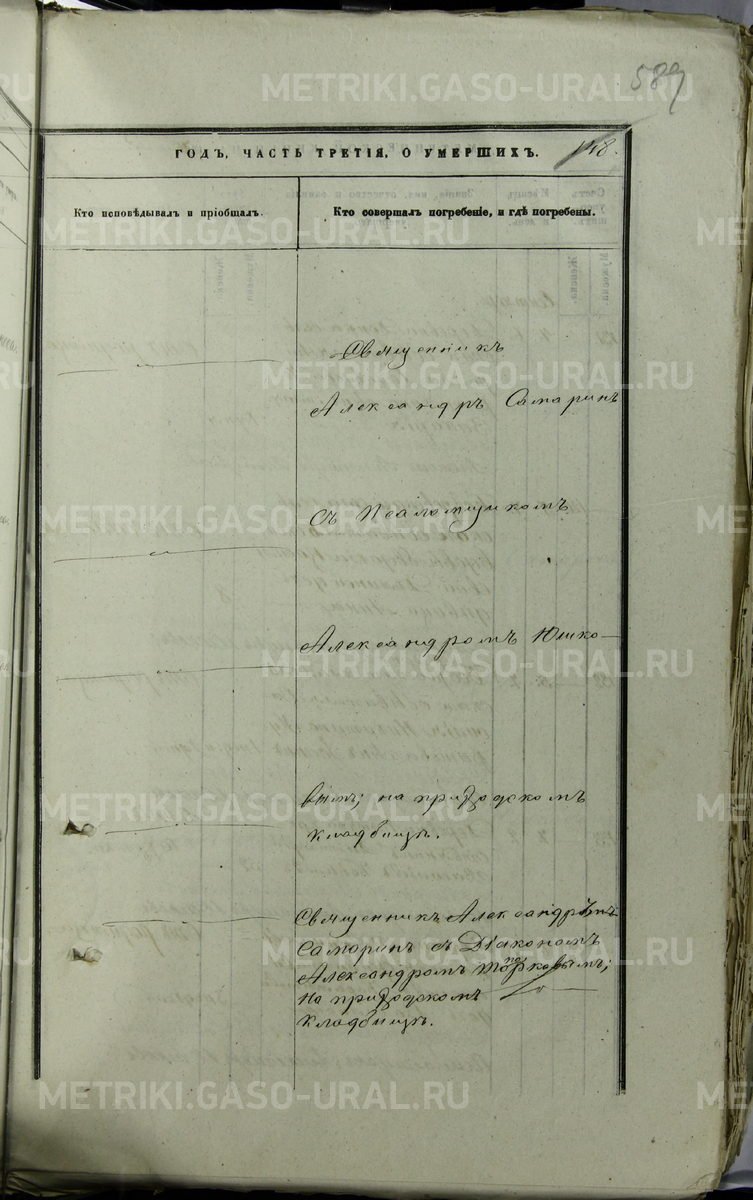 METRIKI.GASO-URAL.RU
589
ГОДЪ, ЧАСТЬ ТРЕТІЯ, О УМЕРШИХЪ.
148.
Кто исповѣдывалъ и пріобщалъ.
Кто совершалъ погребеніе, и гдѣ погребены.
Священникъ
Александръ Самаринъ
съ Псаломщикомъ
Александромъ Юшко-
вымъ; на приходскомъ
кладбищѣ.
Священникъ Александръ
Самаринъ съ Діакономъ
Александромъ
на приходскомъ
кладбищѣ.